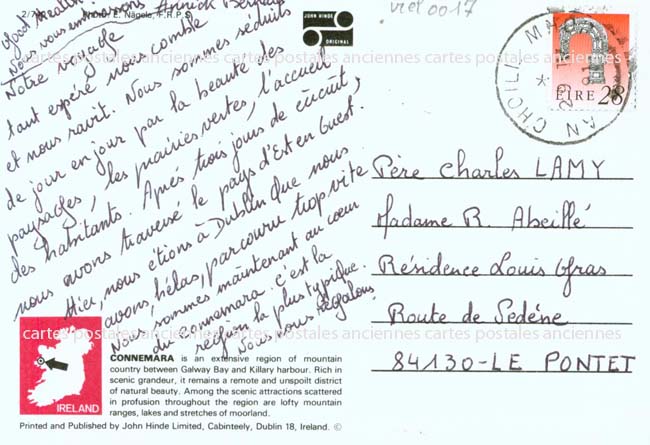 2/7
Photo: E. Nägele, F.R.P.S.
JOHN HINDE
ORIGINAL
viel 0017
Nous vous embrassons Annick Bernard
Notre voyage
tant espéré nous comble
et nous ravit. Nous sommes séduits
de jour en jour par la beauté des
paysages, les prairies vertes, l'accueil
des habitants. Après trois jours de circuit,
nous avons traversé le pays d'Est en Ouest.
Hier, nous étions à Dublin que nous
avons, hélas, parcouru trop vite
Nous sommes maintenant au coeur
du Connemara. c'est la
région la plus typique.
Nous nous régalons.
ÉIRE 28
AN CHOILL MHÓR
29 VII 91
Père Charles LAMY
Madame R. Abeillé
Résidence Louis Gras
Route de Sedène
84130-LE PONTET
cartes postales anciennes cartes postales anciennes cartes postales anciennes
cartes postales anciennes cartes postales anciennes cartes postales anciennes
IRELAND
CONNEMARA is an extensive region of mountain
country between Galway Bay and Killary harbour. Rich in
scenic grandeur, it remains a remote and unspoilt district
of natural beauty. Among the scenic attractions scattered
in profusion throughout the region are lofty mountain
ranges, lakes and stretches of moorland.
Printed and Published by John Hinde Limited, Cabinteely, Dublin 18, Ireland. ©